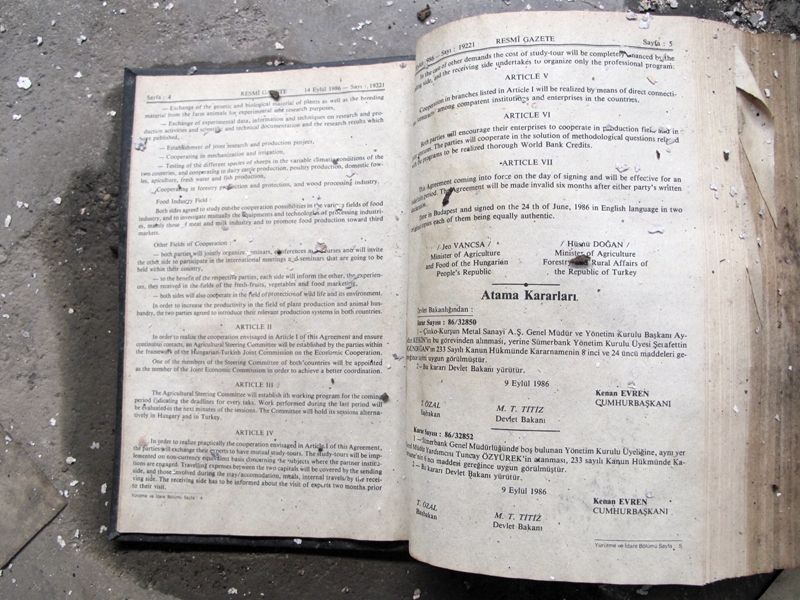 Sayfa : 4 RESMÎ GAZETE 14 Eylül 1986 — Sayı : 19221
— Exchange of the genetic and biological material of plants as well as the breeding
material from the farm animals for experimental and research purposes,
— Exchange of experimental data, information and techniques on research and pro-
duction activities and scientific and technical documentation and the research results which
published,
— Establishment of joint research and production project,
— Cooperating in mechanization and irrigation,
— Testing of the different species of sheeps in the variable climatic conditions of the
two countries, and cooperating in dairy cattle production, poultry production, domestic
agriculture, fresh water and fish production,
— Cooperating in forestry production and protection, and wood processing industry.
Food Industry Field :
Both sides agreed to study out the cooperation possibilities in the various fields of food
industry, and to investigate mutually the equipments and technologies of processing industri-
es, mainly those of meat and milk industry and to promote food production toward third
markets.
Other Fields of Cooperation :
— both parties will jointly organize seminars, conferences and courses and will invite
the other side to participate in the international meetings and seminars that are going to be
held within their country,
— to the benefit of the respective parties, each side will inform the other, the experien-
ces, they received in the fields of the fresh-fruits, vegetables and food marketing,
— both sides will also cooperate in the field of protection of wild life and its environment.
In order to increase the productivity in the field of plant production and animal hus-
bandry, the two parties agreed to introduce their relevant production systems in both countries.
ARTICLE II
In order to realize the cooperation envisaged in Article I of this Agreement and ensure
continual contacts, an Agricultural Steering Committee will be established by the parties within
the framework of the Hungarian-Turkish Joint Commission on the Economic Cooperation.
One of the members of the Steering Committee of both countries will be appointed
as the member of the Joint Economic Commission in order to achieve a better coordination.
ARTICLE III
The Agricultural Steering Committee will establish its working program for the coming
period indicating the deadlines for every taks. Work performed during the last period will
be evaluated in the next minutes of the sessions. The Committee will hold its sessions alterna-
tively in Hungary and in Turkey.
ARTICLE IV
In order to realize practically the cooperation envisaged in Article I of this Agreement,
the parties will exchange their experts to have mutual study-tours. The study-tours will be imp-
lemented on non-currency equivalent basis concerning the subjects where the partner institu-
tions are engaged. Travelling expenses between the two capitals will be covered by the sending
side, and those involved during the stay/accomodation, meals, internal travels/by the recei-
ving side. The receiving side has to be informed about the visit of experts two months prior
to their visit.
Yürütme ve İdare Bölümü Sayfa : 4
1986 — Sayı : 19221 RESMÎ GAZETE Sayfa : 5
In the case of other demands the cost of study-tour will be completely financed by the
side, and the receiving side undertakes to organize only the professional program.
ARTICLE V
Cooperation in branches listed in Article I will be realized by means of direct connecti-
among compatent institutions and enterprises in the countries.
ARTICLE VI
Both parties will encourage their enterprises to cooperate in production field and in
The parties will cooperate in the solution of methodological questions related
programs to be realized thorough World Bank Credits.
ARTICLE VII
This Agreement coming into force on the day of signing and will be effective for an
period. The Agreement will be made invalid six months after either party's written
Done in Budapest and signed on the 24 th of June, 1986 in English language in two
copies each of them being equally authentic.
/ Jeo VANCSA / / Hüsnü DOĞAN /
Minister of Agriculture Minister of Agriculture
and Food of the Hungarian Forestry and Rural Affairs of
People's Republic the Republic of Turkey
Atama Kararları
Devlet Bakanlığından :
Karar Sayısı : 86/32850
1 – Çinko-Kurşun Metal Sanayi A.Ş. Genel Müdür ve Yönetim Kurulu Başkanı Ay-
bu görevinden alınması, yerine Sümerbank Yönetim Kurulu Üyesi Şerafettin
233 Sayılı Kanun Hükmünde Kararnamenin 8 inci ve 24 üncü maddeleri ge-
uygun görülmüştür.
2 – Bu kararı Devlet Bakanı yürütür.
9 Eylül 1986
Kenan EVREN
CUMHURBAŞKANI
T. ÖZAL M. T. TİTİZ
Başbakan Devlet Bakanı
Karar Sayısı : 86/32852
1 – Sümerbank Genel Müdürlüğünde boş bulunan Yönetim Kurulu Üyeliğine, aynı yer
Müdür Yardımcısı Tuncay ÖZYÜREK'in atanması, 233 sayılı Kanun Hükmünde Ka-
maddesi gereğince uygun görülmüştür.
2 – Bu kararı Devlet Bakanı yürütür.
9 Eylül 1986
Kenan EVREN
CUMHURBAŞKANI
T. ÖZAL M. T. TİTİZ
Başbakan Devlet Bakanı
Yürütme ve İdare Bölümü Sayfa : 5